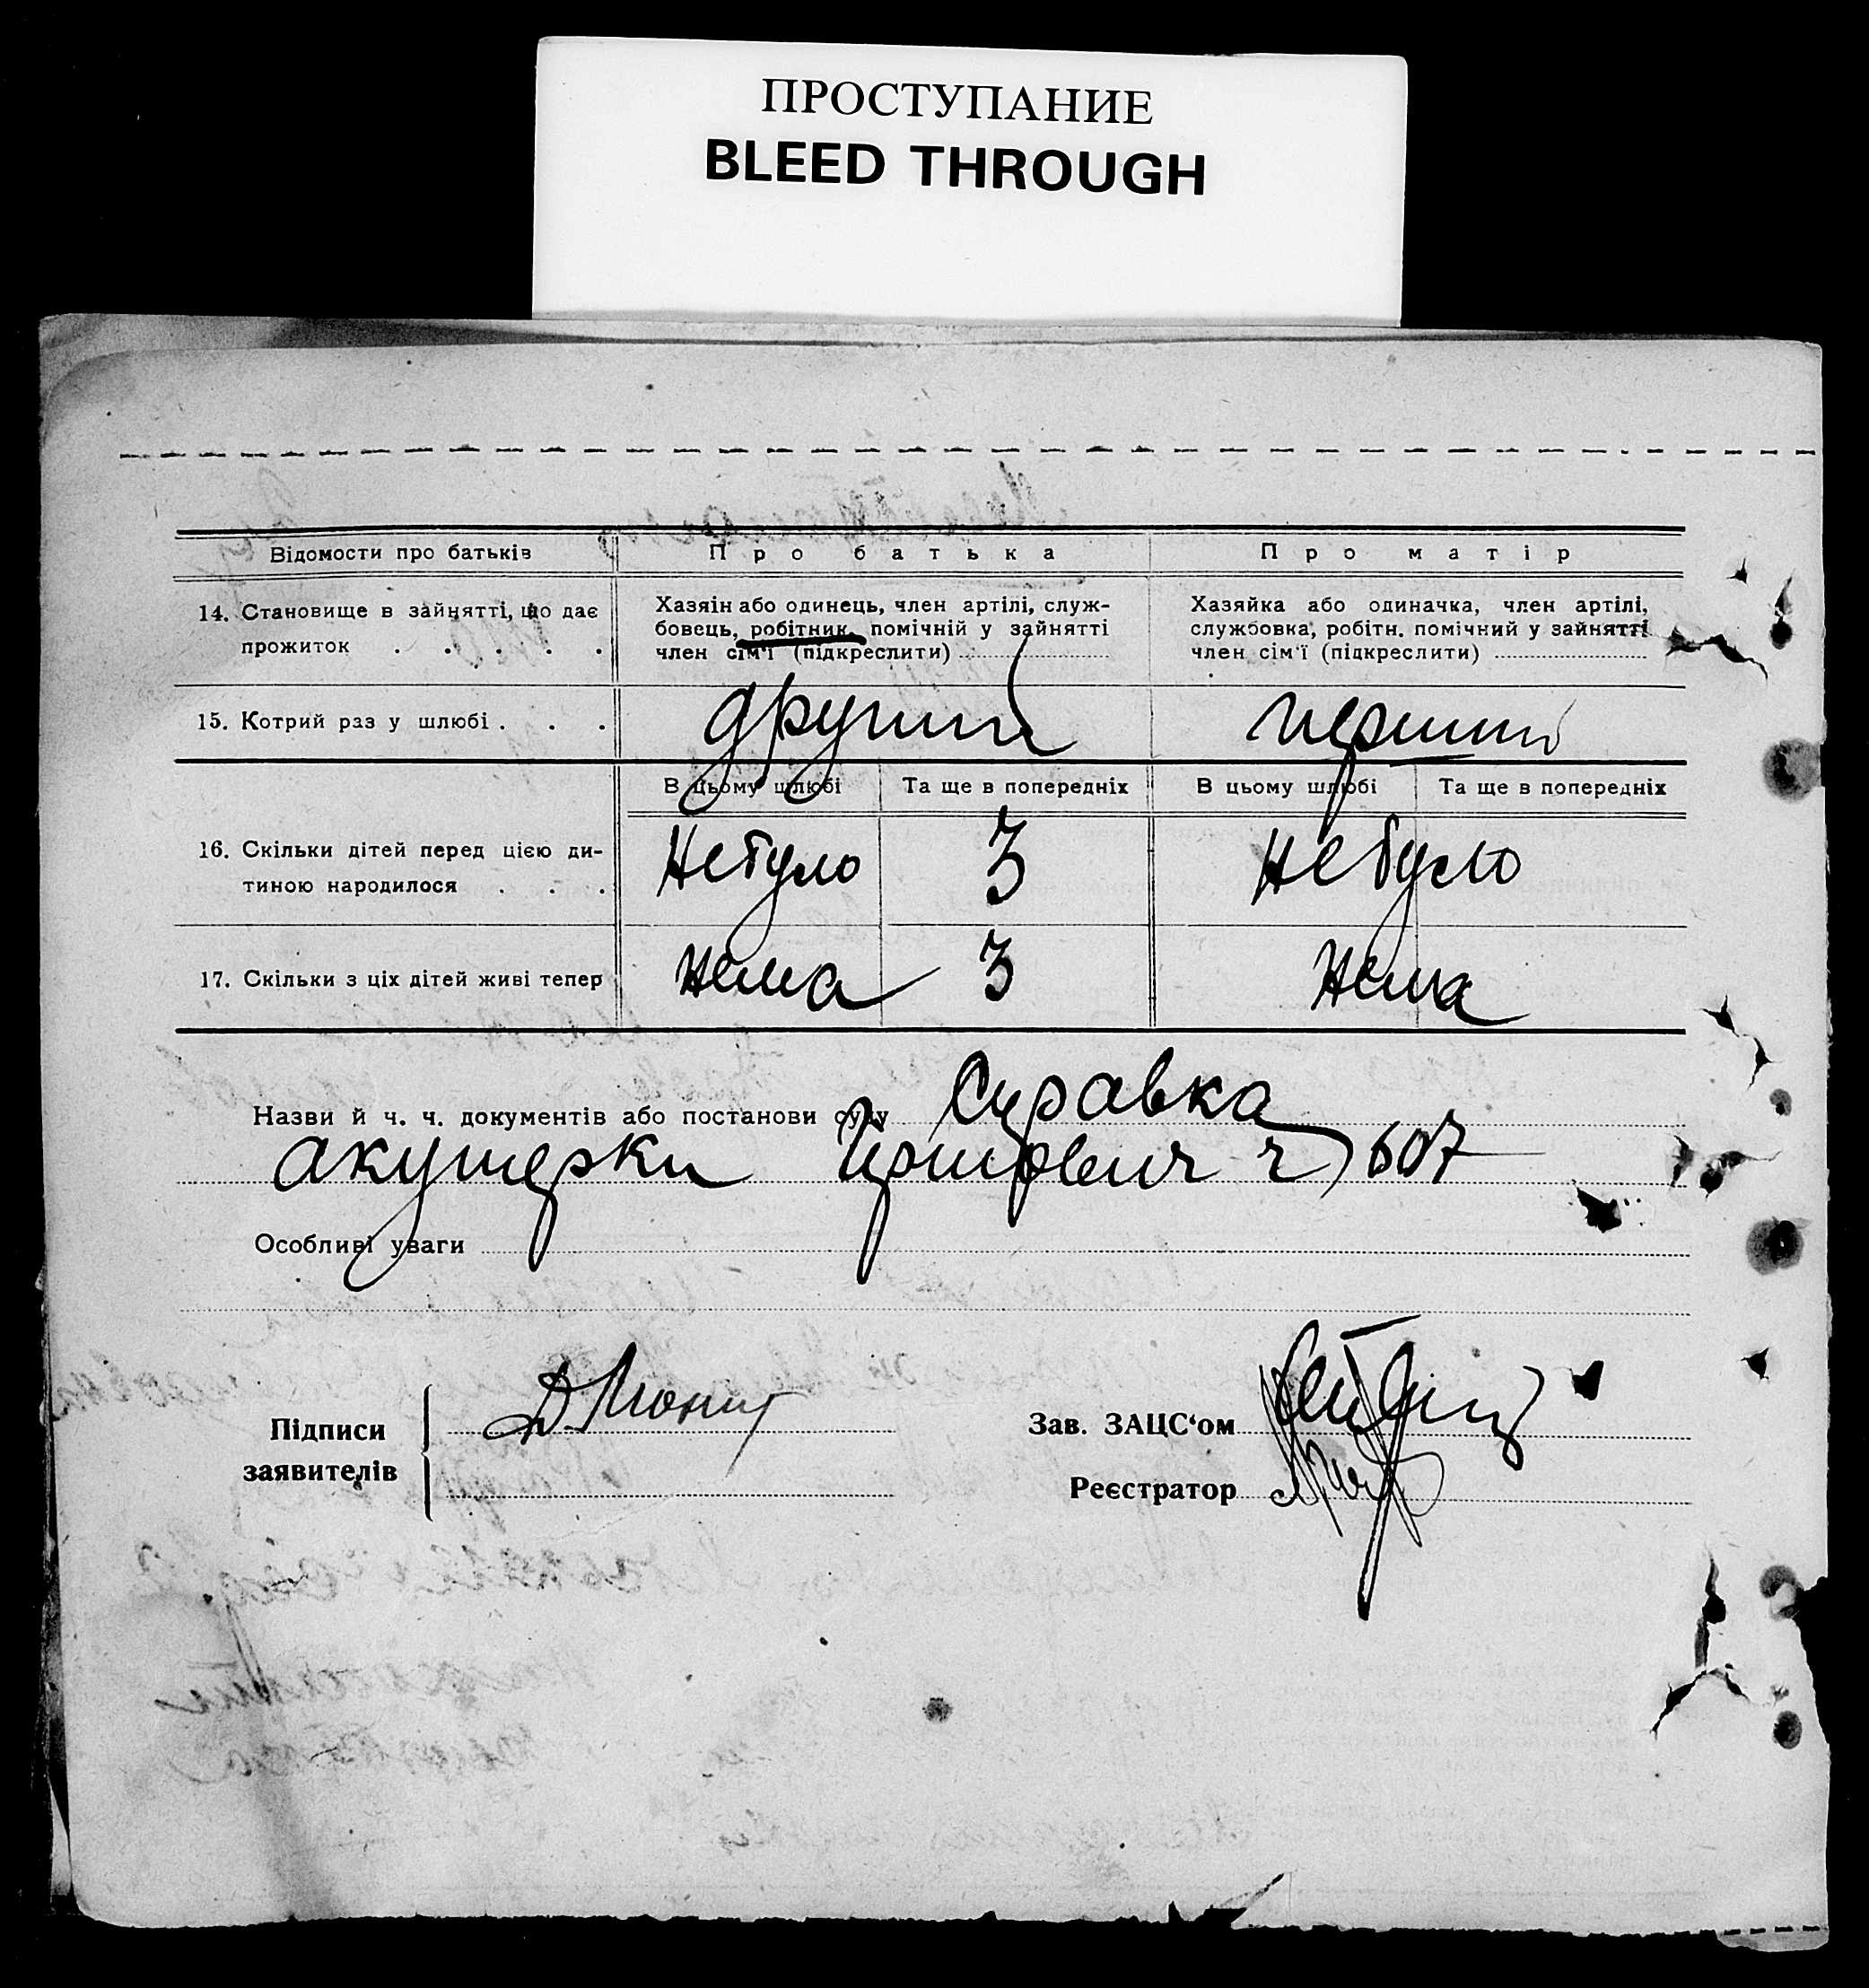 ПРОСТУПАНИЕ
BLEED THROUGH
Відомости про батьків
Про батька
Про матір
14. Становище в зайнятті, що дає
прожиток . . . . .
Хазяін або одинець, член артілі, служ-
бовець, робітник, помічній у зайнятті
член сім'ї (підкреслити)
Хазяйка або одиначка, член артілі,
службовка, робітн. помічний у зайнятті
член сім'ї (підкреслити)
15. Котрий раз у шлюбі . . .
другий
перший
В цьому шлюбі
Та ще в попередніх
В цьому шлюбі
Та ще в попередніх
16. Скільки дітей перед цією ди-
тиною народилося . . .
Небуло
3
Не було
17. Скільки з ціх дітей живі тепер
Нема
3
Нема
Назви й ч. ч. документів або постанови суду Справка
акушерки ч 607
Особливі уваги
Підписи
заявителів
Зав. ЗАЦС‘ом
Реєстратор